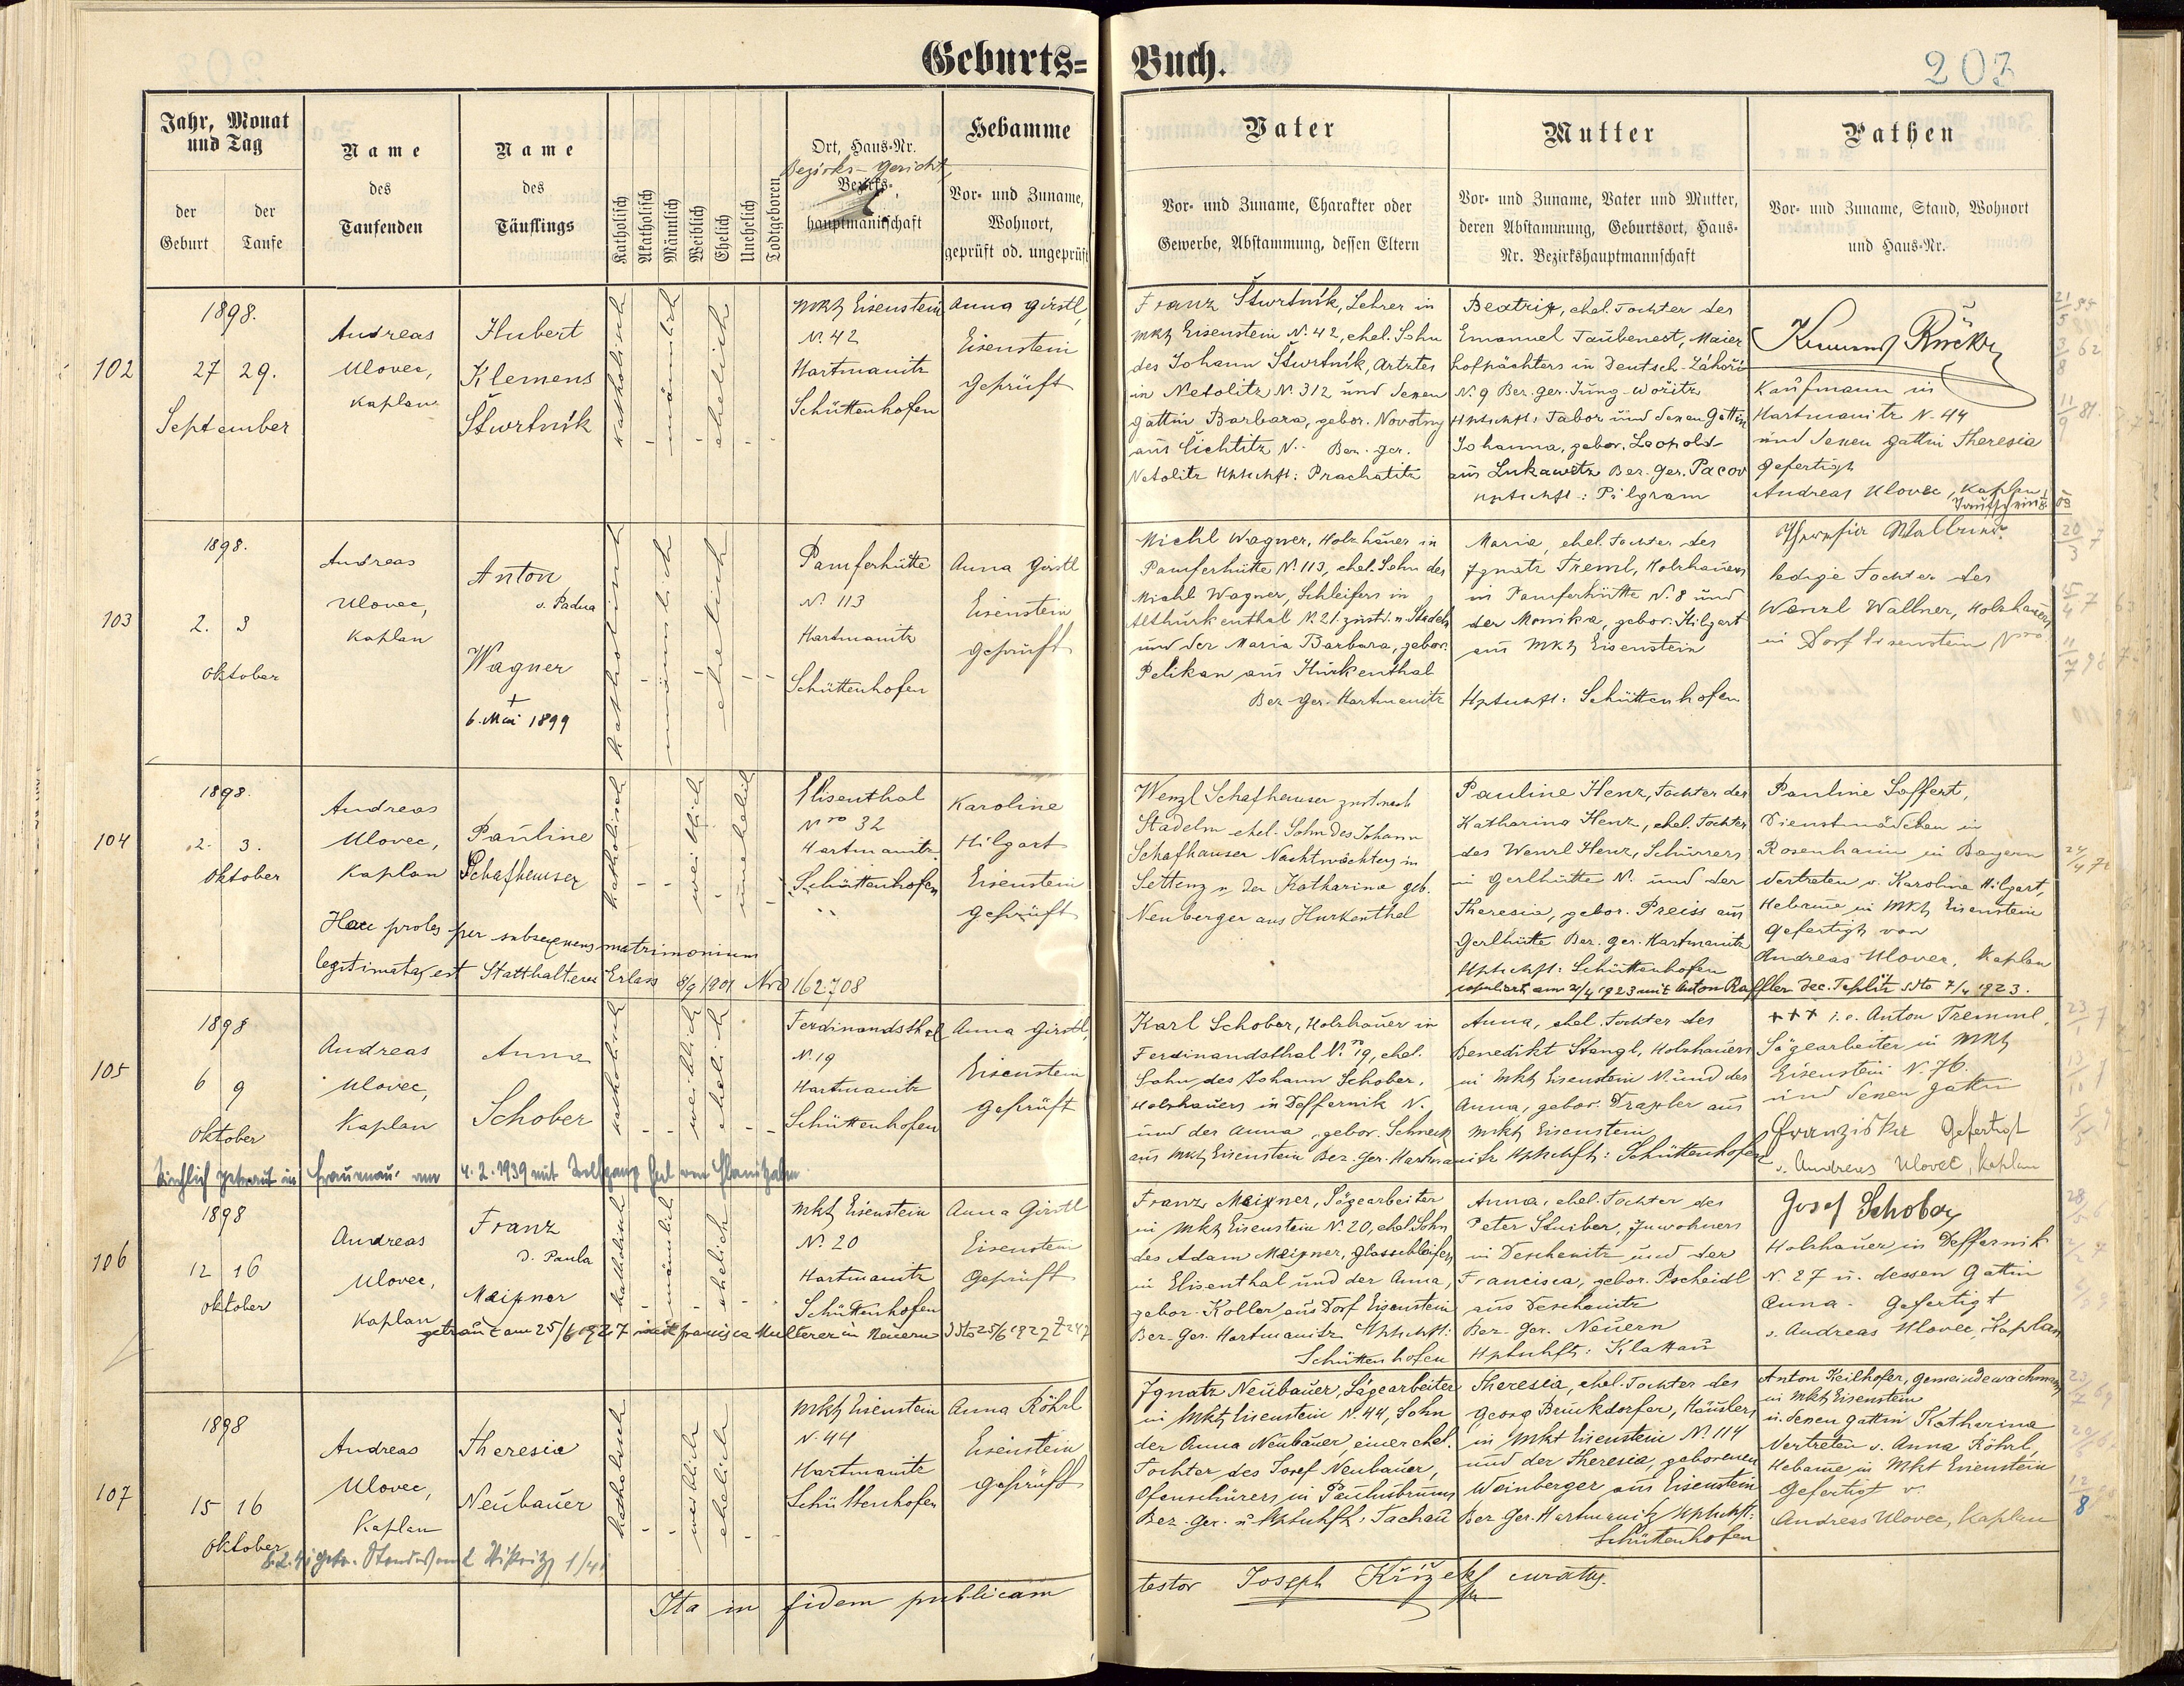 Geburts=Buch.
203
Jahr, Monat und Tag
der Geburt
der Taufe
Name des Taufenden
Name des Täuflings
Katholisch
Akatholisch
Männlich
Weiblich
Ehelich
Unehelich
Todtgeboren
Ort, Haus-Nr.
Bezirks-Gericht,
Bezirks-
hauptmannschaft
Hebamme
Vor- und Zuname,
Wohnort,
geprüft od. ungeprüft
Vater
Vor- und Zuname, Charakter oder
Gewerbe, Abstammung, dessen Eltern
Mutter
Vor- und Zuname, Vater und Mutter,
deren Abstammung, Geburtsort, Haus-
Nr. Bezirkshauptmannschaft
Pathen
Vor- und Zuname, Stand, Wohnort
und Haus-Nr.
102
1898.
27 29.
September
Andreas
Ulovec,
Kaplan
Hubert
Klemens
Štwrtník
katholisch
männlich
ehelich
Mkt Eisenstein
N. 42
Hartmanitz
Schüttenhofen
Anna Girstl,
Eisenstein
geprüft
Franz Štwrtník, Lehrer in
Mkt Eisenstein N. 42, ehel. Sohn
des Johann Štwrtník, Arztes
in Netolitz N. 312 und dessen
Gattin Barbara, gebor. Novotny
aus Lichtitz N. Bez. Ger.
Netolitz Hptschft: Prachatitz
Beatrix, ehel. Tochter des
Emanuel Taubenest, Maier
hofpächters in Deutsch-Záhoři
N. 9 Ber. Ger. Jung-Wořitz
Hptschft: Tabor und dessen Gattin
Johanna, gebor. Leopold
aus Lukawetz Ber. Ger. Pacov
Hptschft: Pilgram
Kaufmann in
Hartmanitz N. 44
und dessen Gattin Theresia
gefertigt
Andreas Ulovec, Kaplan
103
1898.
2. 3
Oktober
Andreas
Ulovec,
Kaplan
Anton
v. Padua
Wagner
+
6. Mai 1899
katholisch
männlich
ehelich
Pamferhütte
N. 113
Hartmanitz
Schüttenhofen
Anna Girstl
Eisenstein
geprüft
Michl Wagner, Holzhauer in
Pamferhütte N. 113, ehel. Sohn des
Michl Wagner, Schleifers in
Althurkenthal N. 21. zust. n. Stadeln
und der Maria Barbara, gebor.
Pelikan aus Hurkenthal
Bez. Ger. Hartmanitz
Maria, ehel. Tochter des
Ignatz Treml, Holzhauers
in Pamferhütte N. 8 und
der Monika, gebor. Hilgart
aus Mkt Eisenstein
Hptschft: Schüttenhofen
ledige Tochter des
Wenzl Wallner, Holzhauers
in Dorf Eisenstein Nro
104
1898.
2. 3.
Oktober
Andreas
Ulovec,
Kaplan
Pauline
Schafhauser
katholisch
weiblich
unehelich
Elisenthal
Nro 32
Hartmanitz
Schüttenhofen
Karoline
Hilgart
Eisenstein
geprüft
Haec proles per subsequens matrimonium
legitimata est Statthalterei Erlass 8/9 1901 Nro 162708
Wenzl Schafhauser zust nach
Stadeln ehel. Sohn des Johann
Schafhauser Nachtwächters in
Lettenz u. der Katharina geb.
Neuberger aus Hurkenthal
Pauline Henz, Tochter der
Katharina Henz, ehel. Tochter
des Wenzl Henz, Schürers
in Gerlhütte N. und der
Theresia, gebor. Preiss aus
Gerlhütte Ber. Ger. Hartmanitz
Hptschft: Schüttenhofen
Pauline Soffert,
Dienstmädchen in
Rosenheim in Bayern
Vertreten v. Karoline Hilgart,
Hebame in Mkt Eisenstein
gefertigt von
Andreas Ulovec, Kaplan
copuliert am 2/4 1923 mit Anton Raffler Dec. Teplitz ddto 7/4 1923.
105
1898
6 9
Oktober
Andreas
Ulovec,
Kaplan
Anna
Schober
katholisch
weiblich
ehelich
Ferdinandsthal
N. 19
Hartmanitz
Schüttenhofen
Anna Girstl,
Eisenstein
geprüft
Karl Schober, Holzhauer in
Ferdinandsthal N. 19, ehel.
Sohn des Johann Schober,
Holzhauers in Deffernik N.
und der Anna, gebor. Schneck
aus Mkt Eisenstein Bez. Ger. Hartmanitz Hptschft: Schüttenhofen
Anna, ehel. Tochter des
Benedikt Stangl, Holzhauers
in Mkt Eisenstein N. und der
Anna, gebor. Draxler aus
Mkt Eisenstein
+++ i.e. Anton Tremml,
Sägearbeiter in Mkt
Eisenstein N. 76.
und dessen Gattin
Franziska Gefertigt
v. Andreas Ulovec, Kaplan
Kirchlich getraut in Frauenau am 4.2.1939 mit Wolfgang
106
1898
12 16
Oktober
Andreas
Ulovec,
Kaplan
Franz
d. Paula
Meixner
katholisch
männlich
ehelich
Mkt Eisenstein
N. 20
Hartmanitz
Schüttenhofen
Anna Girstl
Eisenstein
geprüft
getraut am 25/6 1927 mit Francisca Multerer in Neuern ddto 25/6 1922 Z 247
Franz Meixner, Sägearbeiter
in Mkt Eisenstein N. 20, ehel. Sohn
des Adam Meixner, Glasschleifers
in Elisenthal und der Anna,
gebor. Koller aus Dorf Eisenstein
Ber. Ger. Hartmanitz Hptschft:
Schüttenhofen
Anna, ehel. Tochter des
Peter Stuiber, Inwohners
in Deschenitz und der
Francisca, gebor. Pscheidl
aus Deschenitz
Bez. Ger. Neuern
Hptschft: Klattau
Josef Schober
Holzhauer in Deffernik
N. 27 u. dessen Gattin
Anna. Gefertigt
v. Andreas Ulovec, Kaplan
107
1898
15 16
Oktober
Andreas
Ulovec,
Kaplan
Theresia
Neubauer
katholisch
weiblich
ehelich
Mkt Eisenstein
N. 44
Hartmanitz
Schüttenhofen
Anna Röhrl
Eisenstein
geprüft
Ignatz Neubauer, Sägearbeiter
in Mkt Eisenstein N. 44, Sohn
der Anna Neubauer, einer ehel.
Tochter des Josef Neubauer,
Ofenschürers in Paulusbrunn
Bez. Ger. u. Hptschft: Tachau
Theresia, ehel. Tochter des
Georg Bruckdorfer, Häuslers
in Mkt Eisenstein N. 114
und der Theresia, geborenen
Weinberger aus Eisenstein
Ber Ger. Hartmanitz Hptschft:
Schüttenhofen
Anton Keilhofer, Gemeindewachmann
in Mkt Eisenstein
u. dessen Gattin Katharina
Vertreten v. Anna Röhrl,
Hebame in Mkt Eisenstein
Gefertigt v.
Andreas Ulovec, Kaplan
Ita in fidem publicam
testor Joseph Křížek curatus.